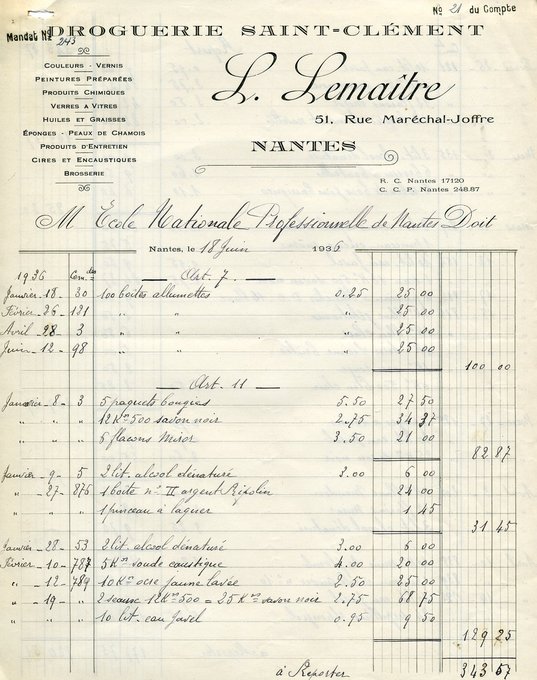 Nº 21 du Compte
Mandat Nº 243
DROGUERIE SAINT-CLÉMENT
COULEURS - VERNIS
PEINTURES PRÉPARÉES
PRODUITS CHIMIQUES
VERRES A VITRES
HUILES ET GRAISSES
ÉPONGES - PEAUX DE CHAMOIS
PRODUITS D'ENTRETIEN
CIRES ET ENCAUSTIQUES
BROSSERIE
L. Lemaître
51, Rue Maréchal-Joffre
NANTES
R. C. Nantes 17120
C. C. P. Nantes 248.87
M École Nationale Professionnelle de Nantes Doit
Nantes, le 18 Juin 1936
1936 Com. des — Art. 7 —
Janvier - 18 - 30 100 boîtes allumettes 0.25 25 00
Février - 26 - 121 " " " 25 00
Avril - 28 - 3 " " " 25 00
Juin - 12 - 98 " " " 25 00
100 00
— Art. 11 —
Janvier - 8 - 3 5 paquets bougies 5.50 27 50
" " " 12 Kos 500 savon noir 2.75 34 37
" " " 6 flacons Miror 3.50 21 00
82 87
Janvier - 9 - 5 2 lit. alcool dénaturé 3.00 6 00
" - 27 - 876 1 boîte nº II argent Ripolin 24 00
" " " 1 pinceau à laquer 1 45
31 45
Janvier - 28 - 53 2 lit. alcool dénaturé 3.00 6 00
Février - 10 - 787 5 Kos soude caustique 4.00 20 00
" - 12 - 789 10 Kos ocre jaune lavée 2.50 25 00
" - 19 - " 2 seaux 12 Kos 500 = 25 Kos savon noir 2.75 68 75
" " " 10 lit. eau Javel 0.95 9 50
129 25
à Reporter 343 57